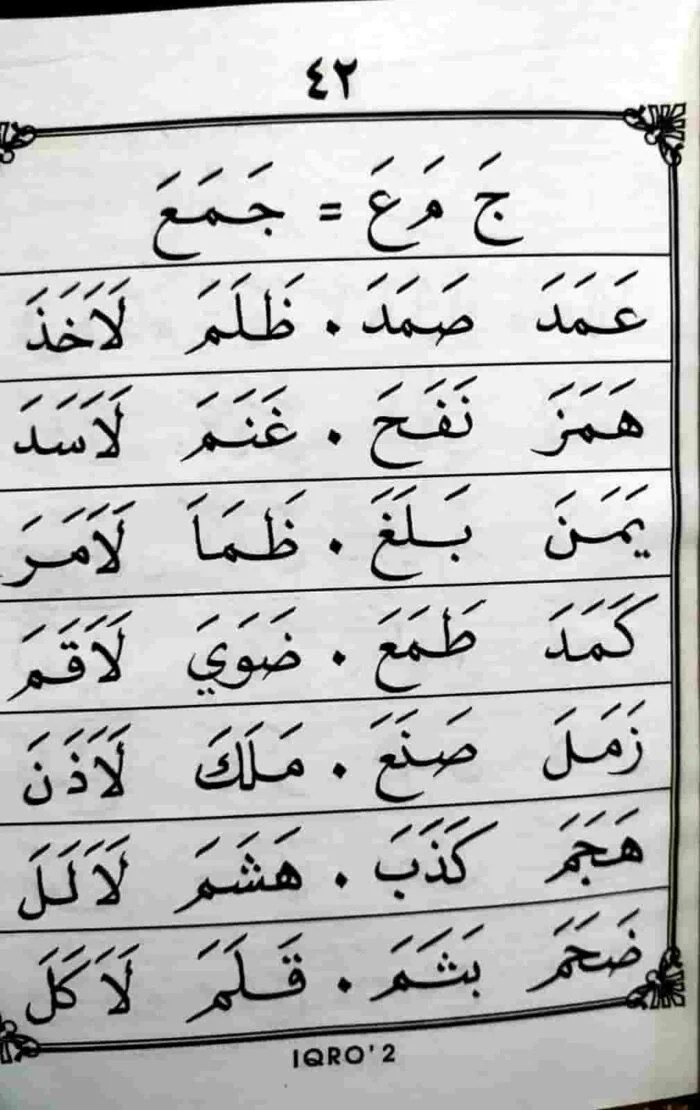 ٤٢
جَ مَ عَ = جَمَعَ
عَمَدَ صَمَدَ . ظَلَمَ لَاَخَذَ
هَمَزَ نَفَحَ . غَنَمَ لَاَسَدَ
يَمَنَ بَلَغَ . ظَمَاَ لَاَمَرَ
كَمَدَ طَمَعَ . ضَوَيَ لَاَقَمَ
زَمَلَ صَنَعَ . مَلَكَ لَاَذَنَ
هَجَمَ كَذَبَ . هَشَمَ لَاَلَلَ
ضَحَمَ بَشَمَ . قَلَمَ لَاَكَلَ
IQRO'2